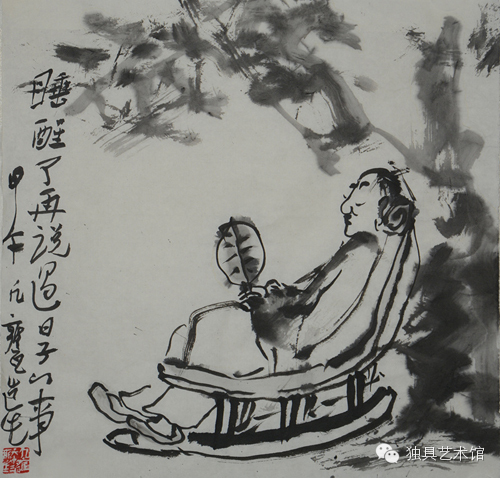 睡醒了再说過日子的事
甲午
独具艺术馆